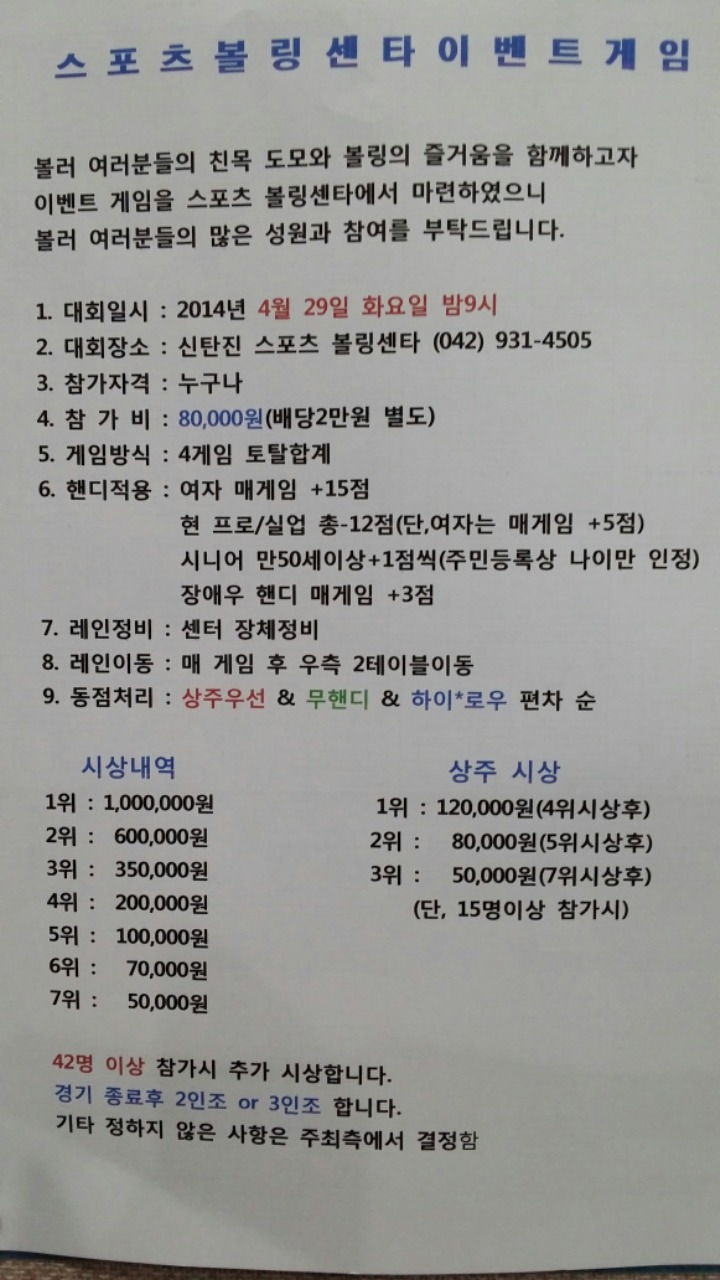 스포츠볼링센타이벤트게임
볼러 여러분들의 친목 도모와 볼링의 즐거움을 함께하고자
이벤트 게임을 스포츠 볼링센타에서 마련하였으니
볼러 여러분들의 많은 성원과 참여를 부탁드립니다.
1. 대회일시 : 2014년 4월 29일 화요일 밤9시
2. 대회장소 : 신탄진 스포츠 볼링센타 (042) 931-4505
3. 참가자격 : 누구나
4. 참 가 비 : 80,000원(배당2만원 별도)
5. 게임방식 : 4게임 토탈합계
6. 핸디적용 : 여자 매게임 +15점
현 프로/실업 총-12점(단,여자는 매게임 +5점)
시니어 만50세이상+1점씩(주민등록상 나이만 인정)
장애우 핸디 매게임 +3점
7. 레인정비 : 센터 장체정비
8. 레인이동 : 매 게임 후 우측 2테이블이동
9. 동점처리 : 상주우선 & 무핸디 & 하이*로우 편차 순
시상내역
1위 : 1,000,000원
2위 : 600,000원
3위 : 350,000원
4위 : 200,000원
5위 : 100,000원
6위 : 70,000원
7위 : 50,000원
상주 시상
1위 : 120,000원(4위시상후)
2위 : 80,000원(5위시상후)
3위 : 50,000원(7위시상후)
(단, 15명이상 참가시)
42명 이상 참가시 추가 시상합니다.
경기 종료후 2인조 or 3인조 합니다.
기타 정하지 않은 사항은 주최측에서 결정함